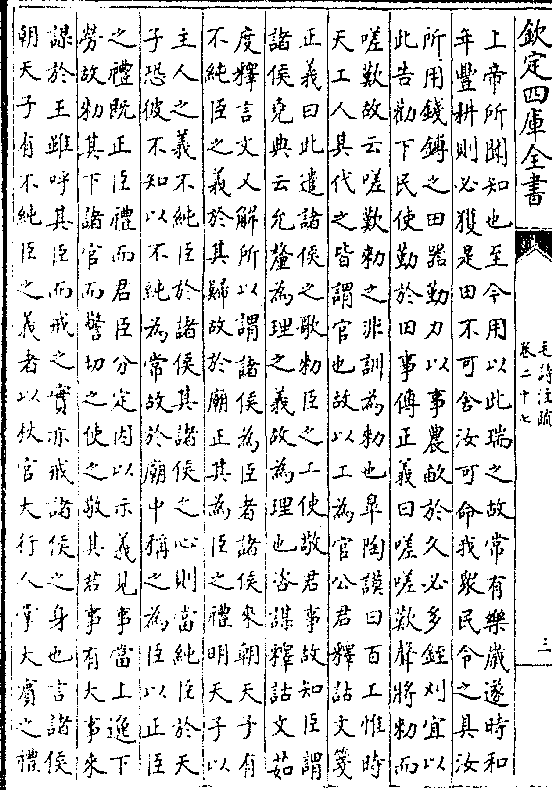 欽定四庫全書
毛詩注疏
卷二十七
三
上帝所聞知也至今用以此瑞之故常有樂歲遂時和
年豐耕則必獲是田不可舍汝可命我衆民令之具汝
所用錢鎛之田器勤力以事農畝於久必多銍刈宜以
此告勸下民使勤於田事傳正義曰嗟嗟歎聲將勑而
嗟歎故云嗟歎勑之非訓為勑也臯陶謨曰百工惟時
天工人其代之皆謂官也故以工為官公君釋詁文箋
正義曰此遣諸侯之歌勑臣之工使敬君事故知臣謂
諸侯堯典云允釐為理之義故為理也咨謀釋詁文茹
度釋言文又解所以謂諸侯為臣者諸侯来朝天子有
不純臣之義於其歸故於廟正其為臣之禮明天子以
主人之義不純臣於諸侯其諸侯之心則當純臣於天
子恐彼不知以不純為常故於廟中稱之為臣以正臣
之禮既正臣禮而君臣分定因以示義見事當上逸下
勞故勑其下諸官而警切之使之敬其君事有大事来
謀於王雖呼其臣而戒之實亦戒諸侯之身也言諸侯
朝天子有不純臣之義者以秋官大行人掌大賓之禮